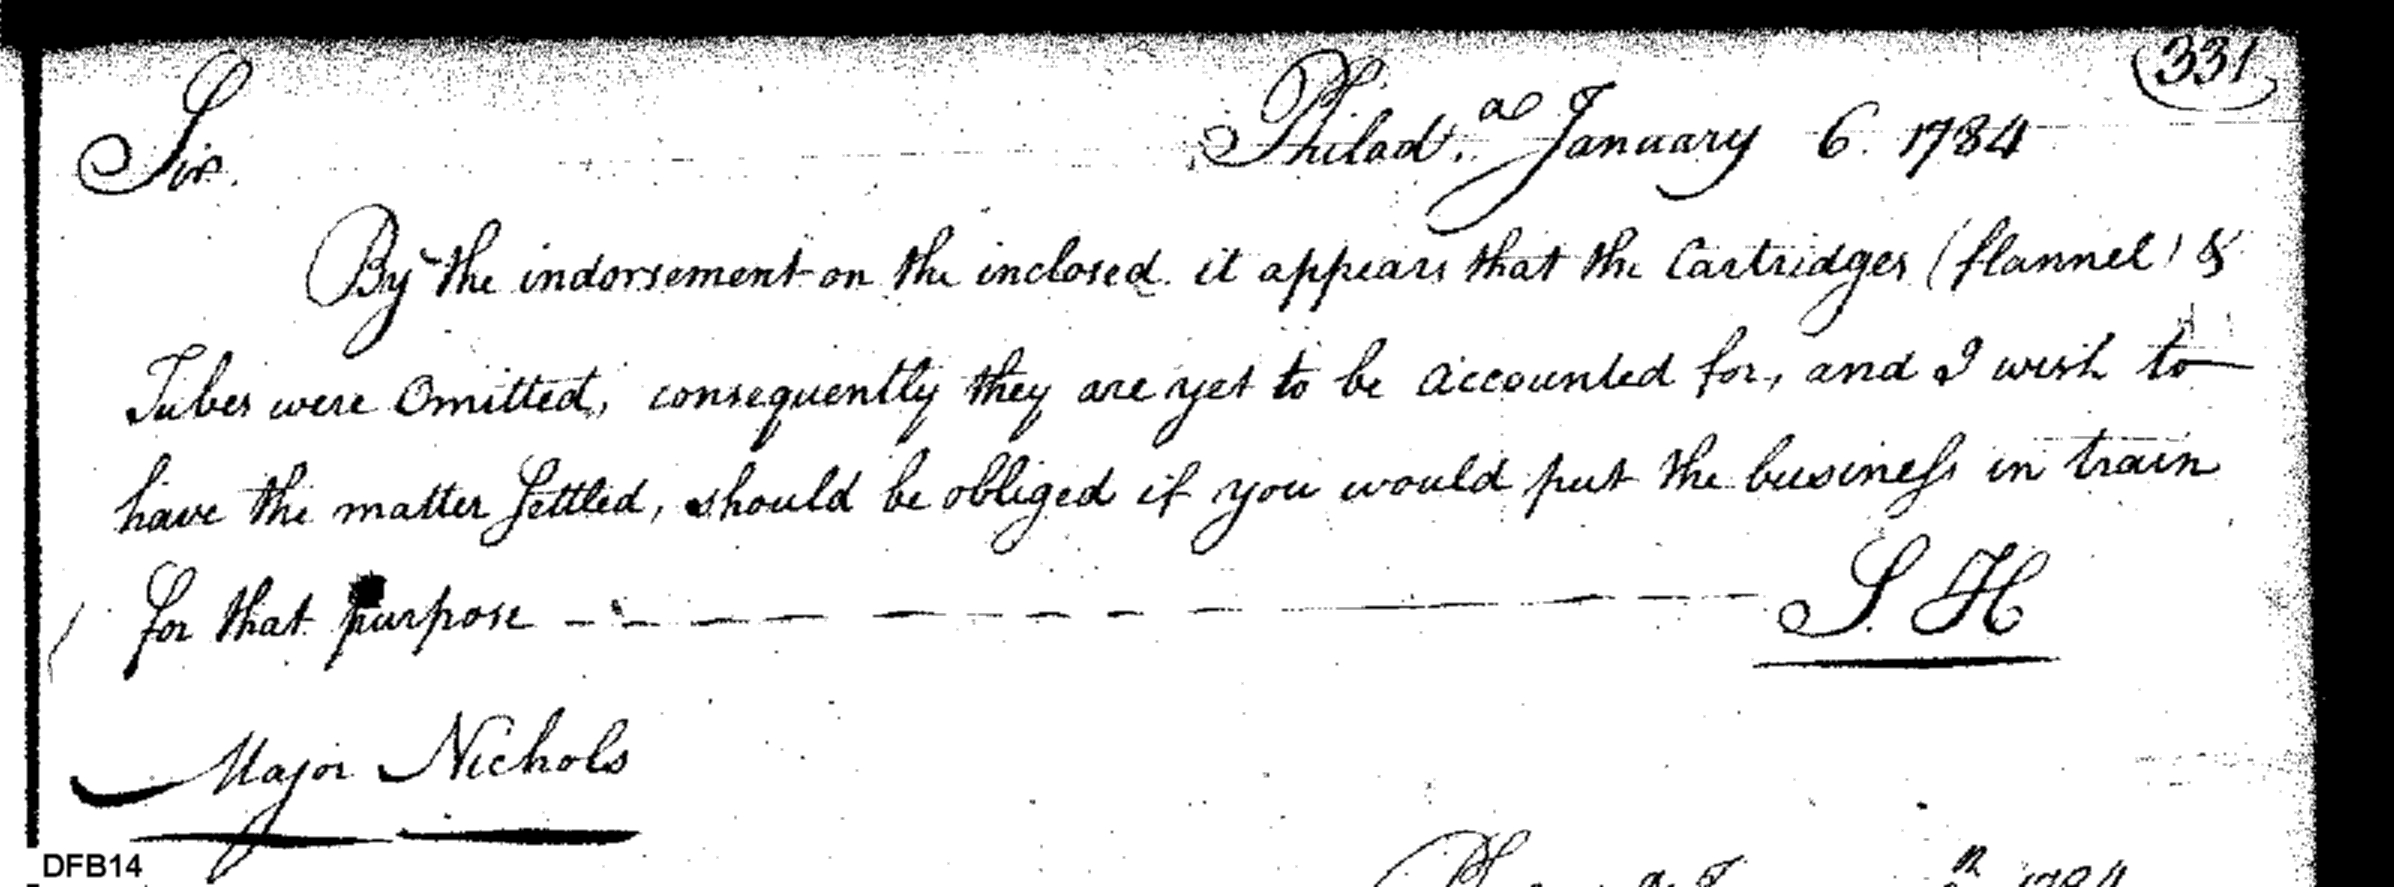 331
Sir. Philad.a January 6. 1784
By the indorsement on the inclosed. it appears that the Cartridges (flannel) &
Tubes were Omitted, consequently they are yet to be accounted for, and I wish to
have the matter Settled, should be obliged if you would put the business in train
for that purpose - - - - - - - - - - S. H
Major Nichols
DFB14
1784